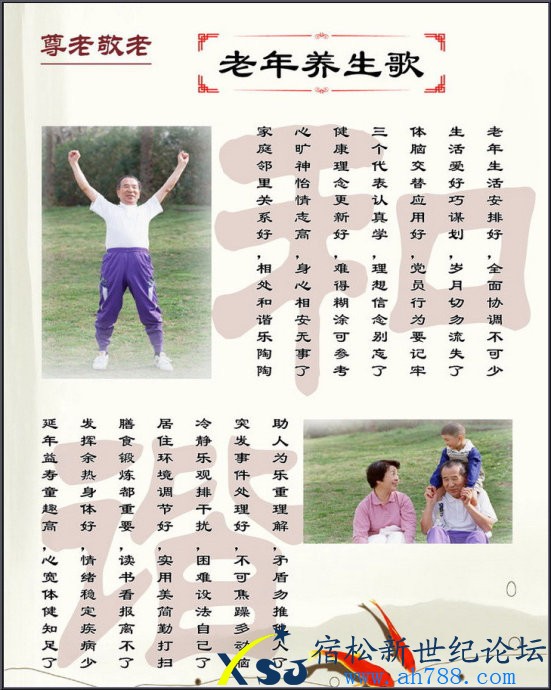 尊老敬老
老年养生歌
老年生活安排好,全面协调不可少
生活爱好巧谋划,岁月切勿流失了
体脑交替应用好,党员行为要记牢
三个代表认真学,理想信念别忘了
健康理念更新好,难得糊涂可参考
心旷神怡情志高,身心相安无事了
家庭邻里关系好,相处和谐乐陶陶
和
助人为乐重理解,矛盾勿推他人了
突发事件处理好,不可焦躁多动恼
冷静乐观排干扰,困难设法自己了
居住环境调节好,实用美简勤打扫
膳食锻炼都重要,读书看报离不了
发挥余热身体好,情绪稳定疾病少
延年益寿童趣高,心宽体健知足了
谐
XSJ
宿松新世纪论坛
www.ah788.com